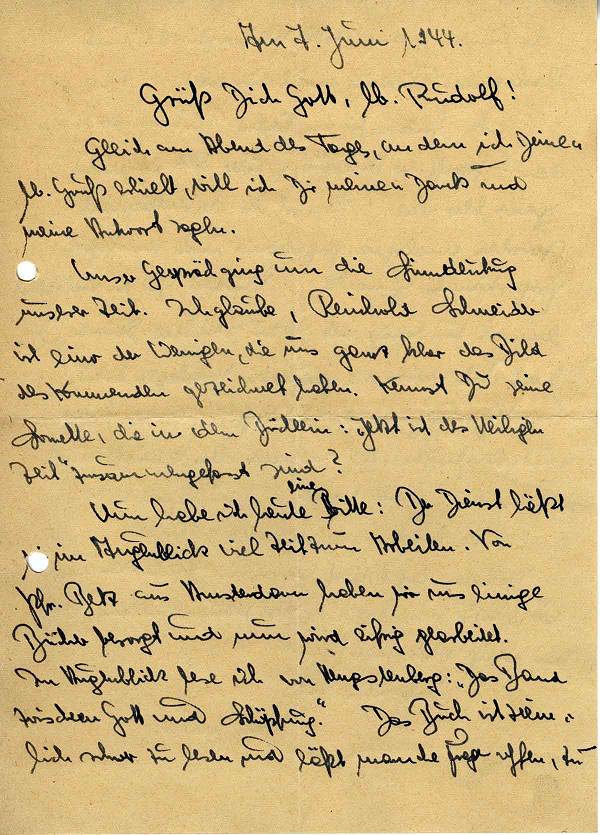 Am 7. Juni 1944.
Grüß Dich Gott, lb. Rudolf!
Gleich am Abend des Tages, an dem ich Deinen
lb. Gruß erhielt, will ich Dir meinen Dank und
meine Antwort sagen.
Unser Gespräch ging um die Sinndeutung
unserer Zeit. Ich glaube, Reinhold Schneider
ist einer der Wenigen, die uns ganz klar das Bild
des Kommenden gezeichnet haben. Kennst Du seine
Sonette, die in dem Büchlein: "Jetzt ist des Heiligen
Zeit" zusammengefasst sind?
Nun habe ich heute eine Bitte: Der Dienst läßt
im Augenblick viel Zeit zum Arbeiten. Von
Pfr. Betz aus Amsterdam haben wir uns einige
Bücher besorgt und nun wird eifrig gearbeitet.
Im Augenblick lese ich von Hengstenberg: "Das Band
zwischen Gott und Schöpfung." Das Buch ist ziem-
lich schwer zu lesen und läßt manche Frage offen, zu